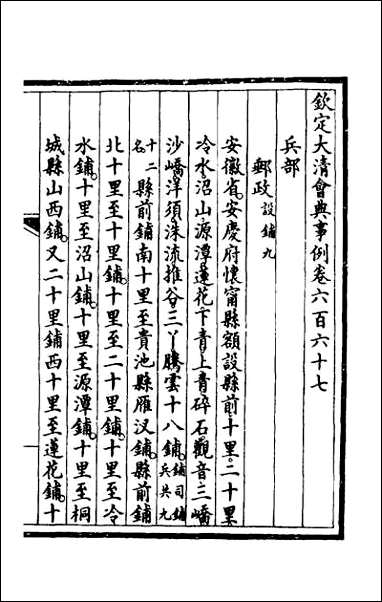 欽定大清會典事例卷六百六十七
兵部
郵政設鋪九
安徽省。安慶府懷甯縣額設縣前。十里。二十里。
冷水。沼山。源潭。蓮花。下青。上青。碎石。觀音。三嶓。
沙嶠。洋須。洙流。推谷。三丫。騰雲十八鋪。鋪司鋪兵共九
十二名縣前鋪南十里至貴池縣雁汊鋪。縣前鋪
北十里至十里鋪。十里至二十里鋪。十里至冷
水鋪。十里至沼山鋪。十里至源潭鋪。十里至桐
城縣山西鋪。又二十里鋪西十里至蓮花鋪。十